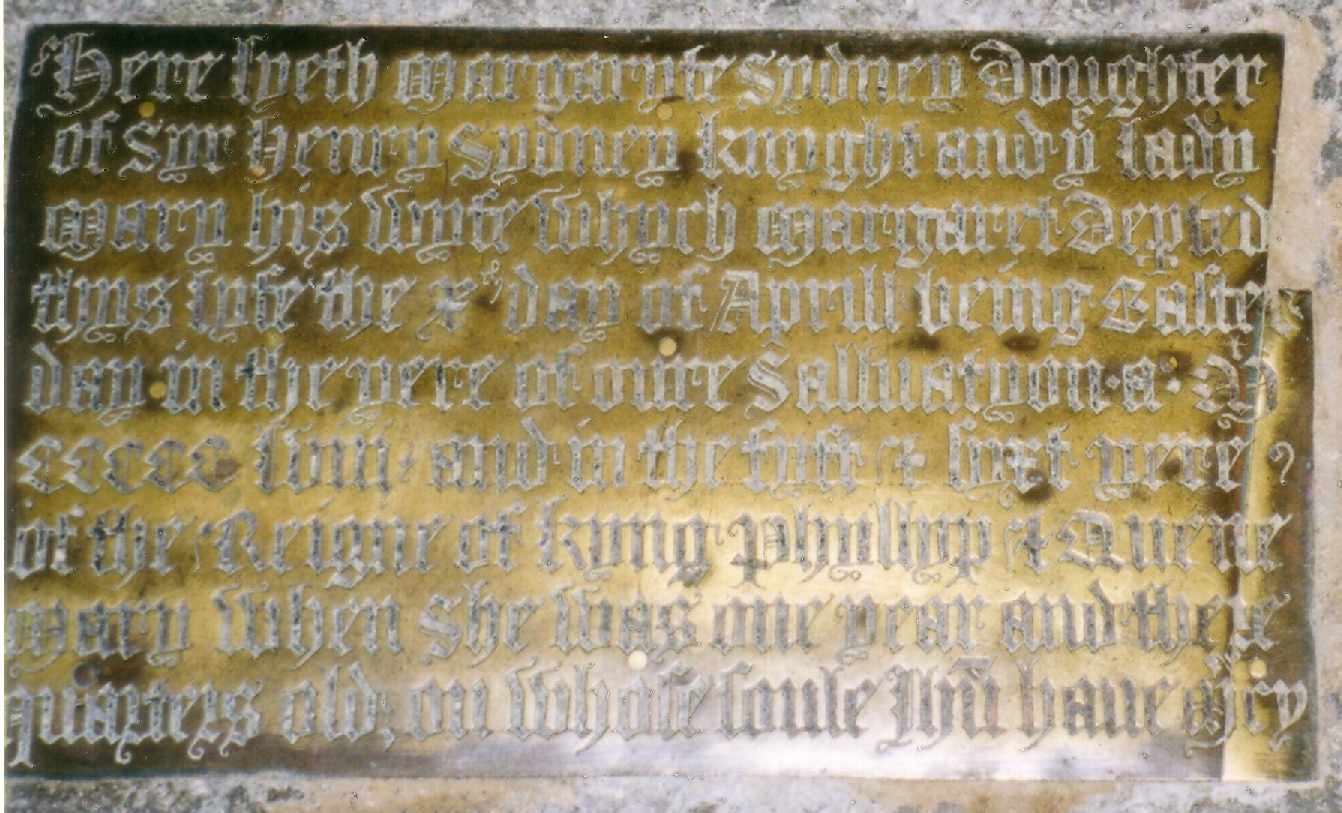 Here lyeth Margaryte Sydney Doughter
of Syr Henry Sydney knyght and yͤ lady
Mary his wyfe whych Margaret Dep̱ted
thys lyfe the xᵗʰ day of Aprill being Easter
day in the yere of oure Salluatyon · aº · M
CCCCC lviii · and in the fyft & syxt yere
of the Reigne of kyng Phyllyp & Quene
Mary when she was one year and thre
quarters old, on whose soule Jhū haue m̄cy